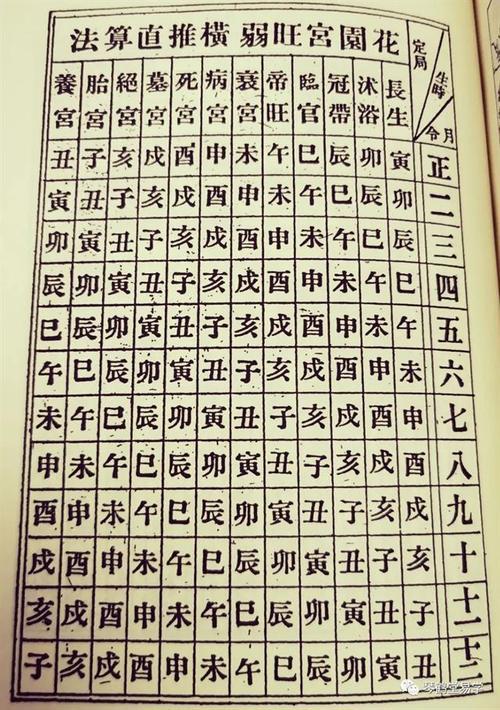 花園宮旺弱橫推直算法
定局 生時 月令 長生 沐浴 冠帶 臨官 帝旺 衰宮 病宮 死宮 墓宮 絕宮 胎宮 養宮
正 寅 卯 辰 巳 午 未 申 酉 戌 亥 子 丑
二 卯 辰 巳 午 未 申 酉 戌 亥 子 丑 寅
三 辰 巳 午 未 申 酉 戌 亥 子 丑 寅 卯
四 巳 午 未 申 酉 戌 亥 子 丑 寅 卯 辰
五 午 未 申 酉 戌 亥 子 丑 寅 卯 辰 巳
六 未 申 酉 戌 亥 子 丑 寅 卯 辰 巳 午
七 申 酉 戌 亥 子 丑 寅 卯 辰 巳 午 未
八 酉 戌 亥 子 丑 寅 卯 辰 巳 午 未 申
九 戌 亥 子 丑 寅 卯 辰 巳 午 未 申 酉
十 亥 子 丑 寅 卯 辰 巳 午 未 申 酉 戌
十一 子 丑 寅 卯 辰 巳 午 未 申 酉 戌 亥
十二 丑 寅 卯 辰 巳 午 未 申 酉 戌 亥 子
琴鹤堂易学